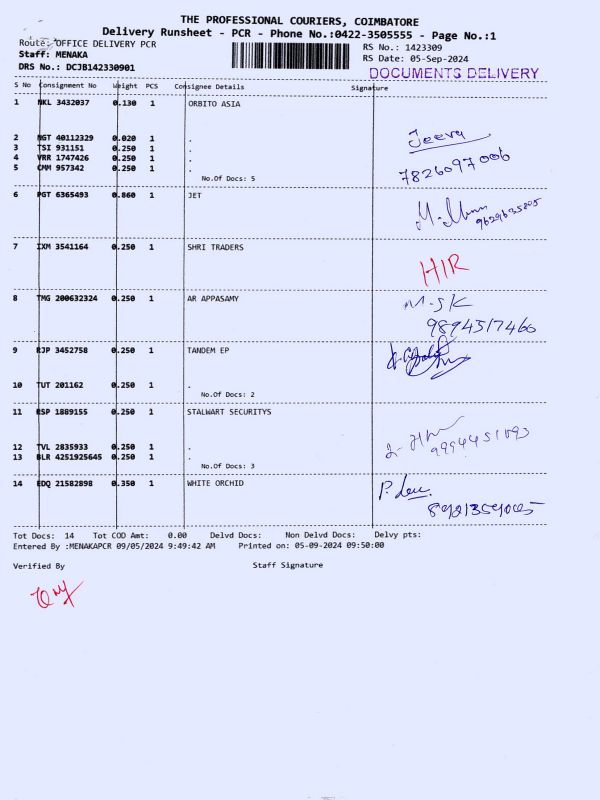 THE PROFESSIONAL COURIERS, COIMBATORE
Delivery Runsheet - PCR - Phone No.:0422-3505555 - Page No.:1
Route: OFFICE DELIVERY PCR
RS No.: 1423309
Staff: MENAKA
RS Date: 05-Sep-2024
DRS No.: DCJB142330901
DOCUMENTS DELIVERY
S No Consignment No Weight PCS Consignee Details Signature
1 NKL 3432037 0.130 1 ORBITO ASIA
2 NGT 40112329 0.020 1 .
3 TSI 931151 0.250 1 .
4 VRR 1747426 0.250 1 .
5 CMM 957342 0.250 1 .
No.Of Docs: 5
Jeeva
7826097006
6 PGT 6365493 0.860 1 JET
7 IXM 3541164 0.250 1 SHRI TRADERS
HIR
8 TMG 200632324 0.250 1 AR APPASAMY
M-SK
9894517466
9 RJP 3452758 0.250 1 TANDEM EP
10 TUT 201162 0.250 1 .
No.Of Docs: 2
11 RSP 1889155 0.250 1 STALWART SECURITYS
12 TVL 2835933 0.250 1 .
13 BLR 4251925645 0.250 1 .
No.Of Docs: 3
14 EDQ 21582898 0.350 1 WHITE ORCHID
Tot Docs: 14 Tot COD Amt: 0.00 Delvd Docs: Non Delvd Docs: Delvy pts:
Entered By :MENAKAPCR 09/05/2024 9:49:42 AM Printed on: 05-09-2024 09:50:00
Verified By Staff Signature